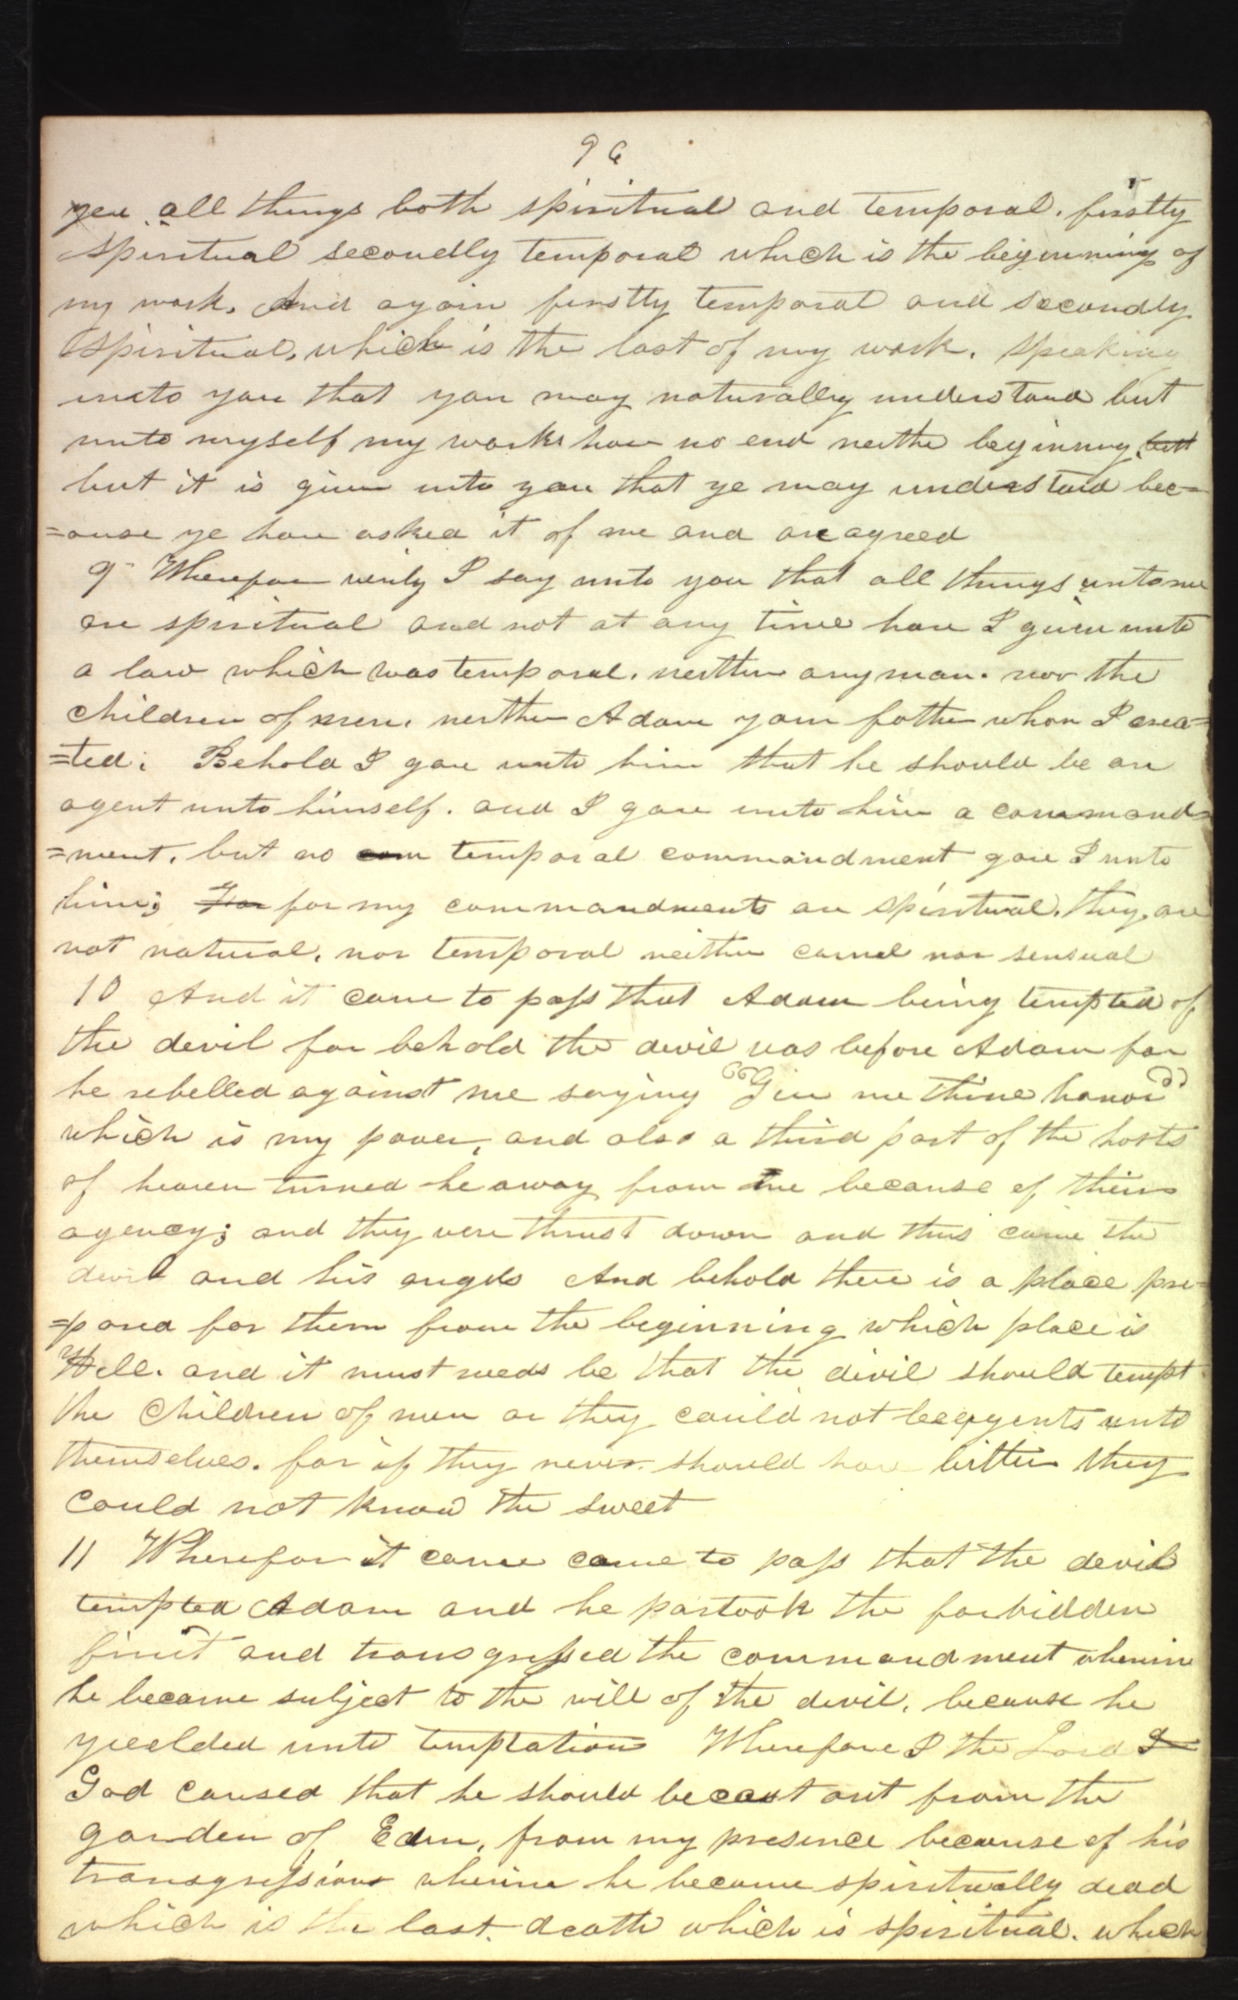 96
yea all things both spiritual and temporal. firstly
spiritual secondly temporal which is the beginning of
my work. And again firstly temporal and secondly
spiritual, which is the last of my work. speaking
unto you that you may naturally understand but
unto myself my works have no end neither beginning. but
but it is given unto you that ye may understand bec=
=ause ye have asked it of me and are agreed
9 Wherefore verily I say unto you that all things unto me
are spiritual and not at any time have I given unto
a law which was temporal. neither any man. nor the
children of men. neither Adam your father whom I crea=
=ted: Behold I gave unto him that he should be an
agent unto himself. and I gave unto him a command=
=ment. but no com temporal commandment gave I unto
him; For for my commandments are spiritual. they are
not natural. nor temporal neither carnel nor sensual
10 And it came to pass that Adam being tempted of
the devil for behold the devil was before Adam for
he rebelled against me saying "Give me thine honor"
which is my power, and also a third part of the hosts
of heaven turned he away from me because of their
agency; and they were thrust down and thus came the
devil and his angels And behold there is a place pre=
=pared for them from the beginning which place is
Hell. and it must needs be that the divil should tempt
the Children of men or they could not be agents unto
themselves. for if they never should have bitter they
could not know the sweet
11 Wherefor it came came to pass that the devil
tempted Adam and he partook the forbidden
fruit and transgressed the commandment wherein
he became subject to the will of the devil. because he
yeelded unto temptation Wherefore I the Lord I
God caused that he should be cast out from the
garden of Eden, from my presence because of his
transgression wherein he became spiritually dead
which is the last. death which is spiritual. which